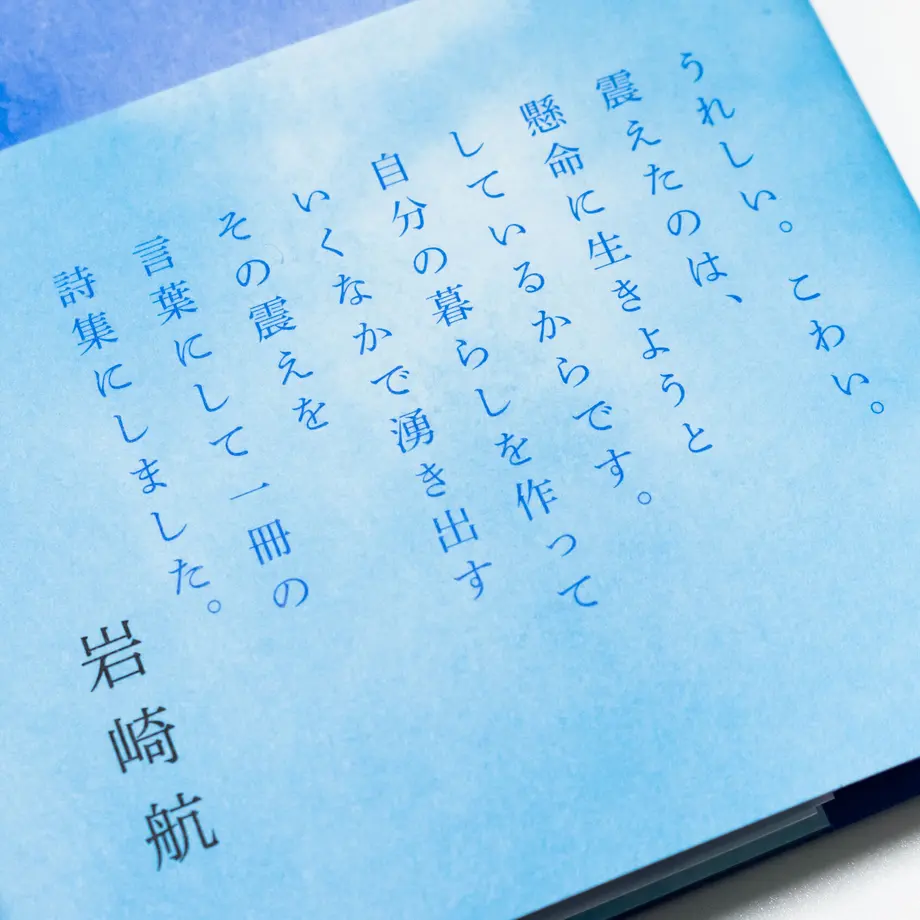 うれしい。こわい。
震えたのは、
懸命に生きようと
しているからです。
自分の暮らしを作って
いくなかで湧き出す
その震えを
言葉にして一冊の
詩集にしました。
岩崎航